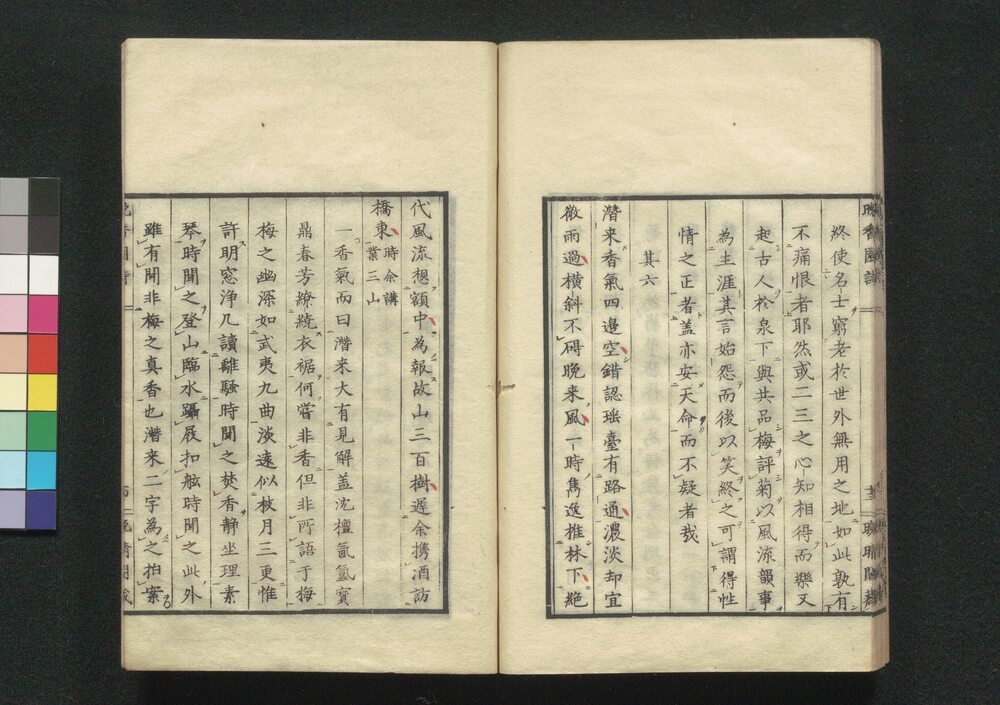 終使名士窮老於世外無用之地如此孰有
不痛恨者耶然或二三之心知相得而樂又
起古人於泉下與共品梅評菊以風流韻事
為生涯其言始怨而後以笑終之可謂得性
情之正者蓋亦安天命而不疑者哉
其六
潛来香氣四邉空錯認瑶臺有路通濃淡却宜
微雨過橫斜不碍晚来風一時雋逸推林下絶
代風流想額中為報故山三百樹遲余携酒訪
橋東時余講業三山
一香氣而曰潛来大有見解蓋沈檀氤氳寳
鼎春芳繚繞衣裾何嘗非香但非所語于梅
梅之幽深如武夷九曲淡遠似枝月三更惟
許明窓浄几讀離騷時聞之焚香静坐理素
琴時聞之登山臨水躡屐扣舷時聞之此外
雖有聞非梅之真香也潛来二字為之拍案